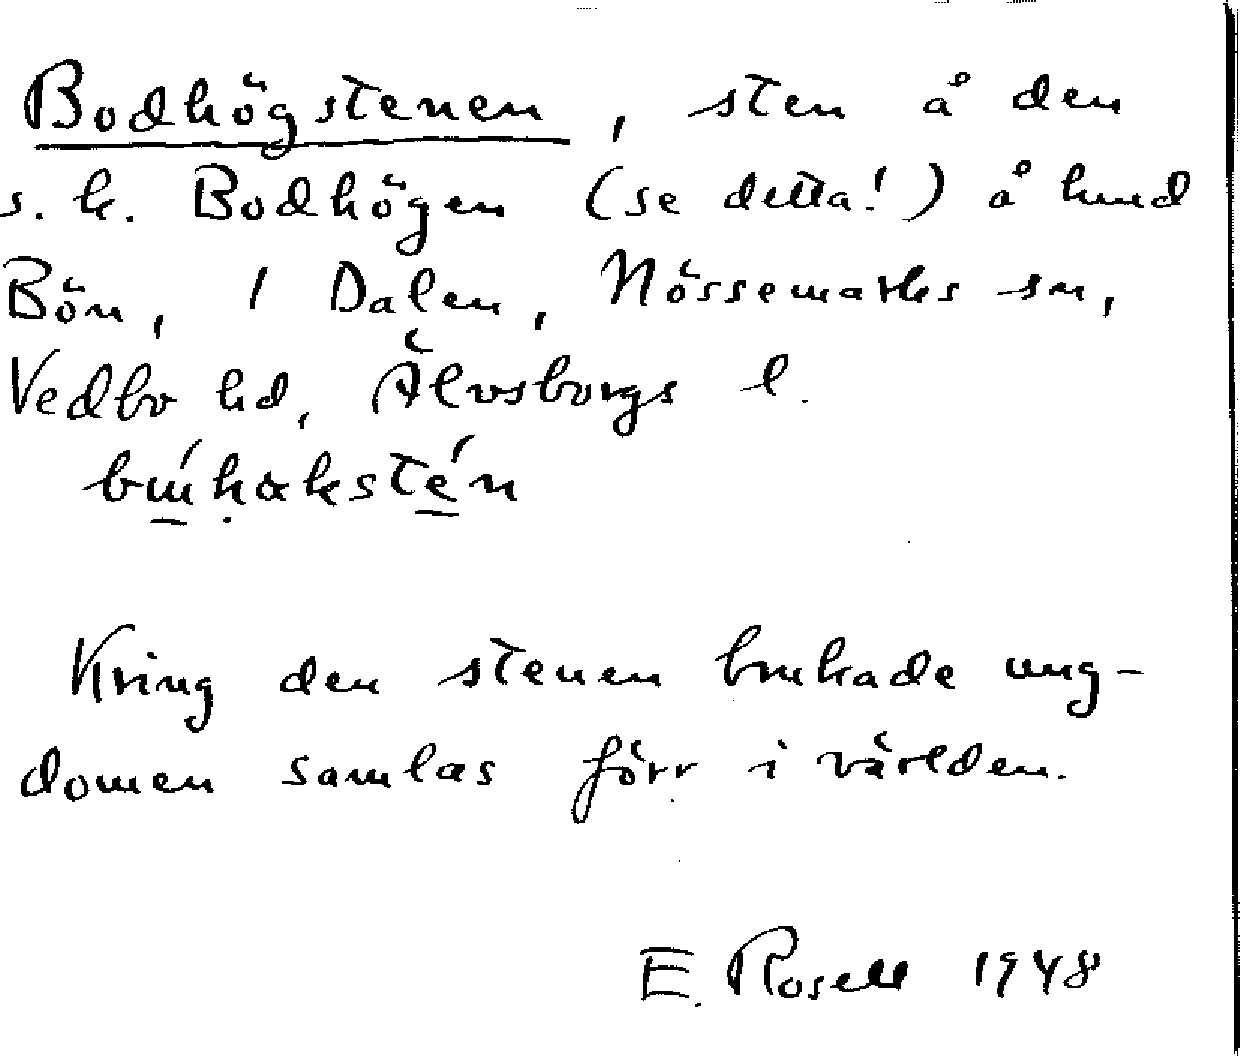 Bodhögstenen, sten å den
s.k. Bodhögen (se detta!) å hmd
Bön, 1 Dalen, Nössemarks sn,
Vedbo hd, Älvsborgs l.
Kring den stenen brukade ung-
domen samlas förr i världen.
E. Rosell 1948